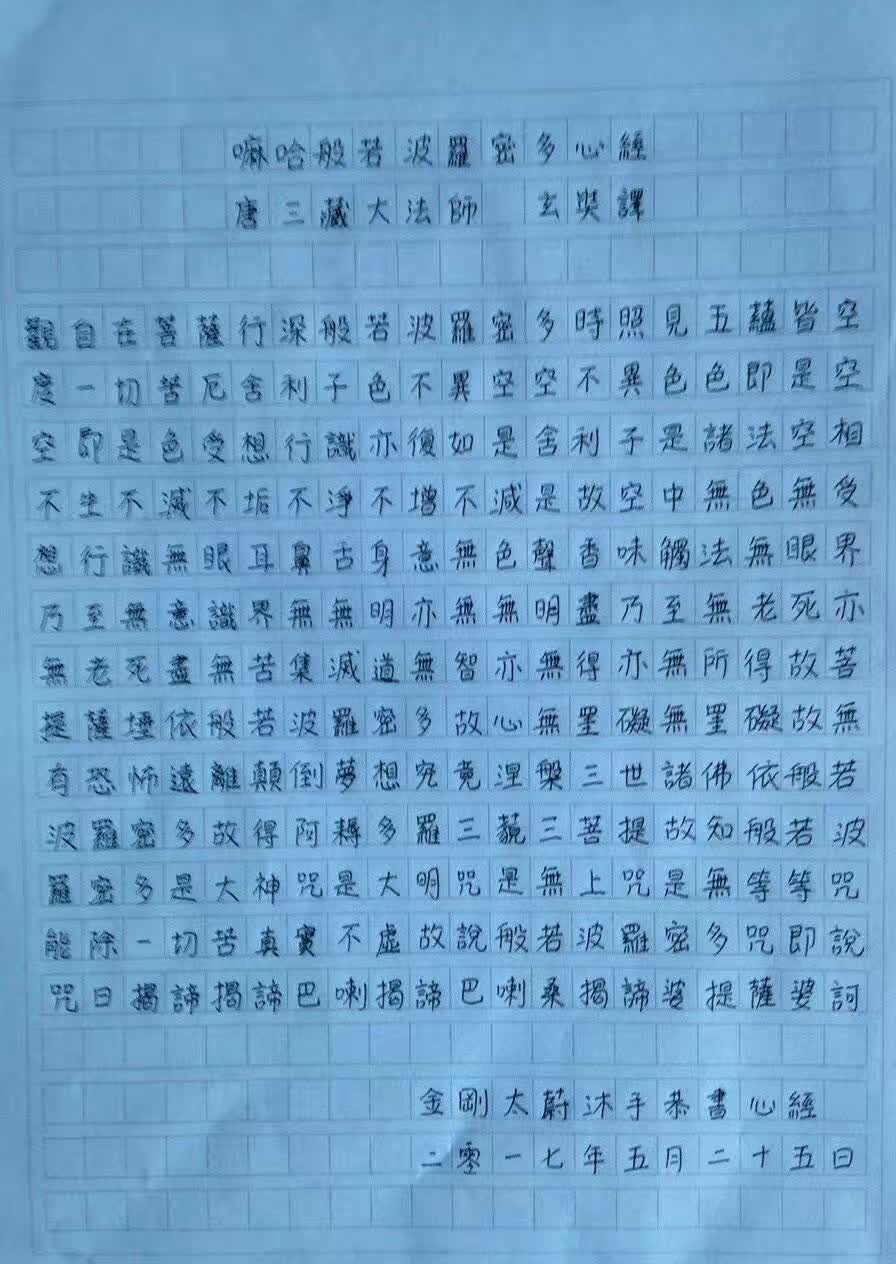 嘛哈般若波羅密多心經
唐三藏大法師 玄奘譯
觀自在菩薩行深般若波羅密多時照見五蘊皆空
度一切苦厄舍利子色不異空空不異色色即是空
空即是色受想行識亦復如是舍利子是諸法空相
不生不滅不垢不淨不增不減是故空中無色無受
想行識無眼耳鼻舌身意無色聲香味觸法無眼界
乃至無意識界無無明亦無無明盡乃至無老死亦
無老死盡無苦集滅道無智亦無得亦無所得故菩
提薩埵依般若波羅密多故心無罣礙無罣礙故無
有恐怖遠離顛倒夢想究竟涅槃三世諸佛依般若
波羅密多故得阿耨多羅三藐三菩提故知般若波
羅密多是大神咒是大明咒是無上咒是無等等咒
能除一切苦真實不虛故說般若波羅密多咒即說
咒曰揭諦揭諦巴喇揭諦巴喇桑揭諦婆提薩婆訶
金剛太蔚沐手恭書心經
二零一七年五月二十五日